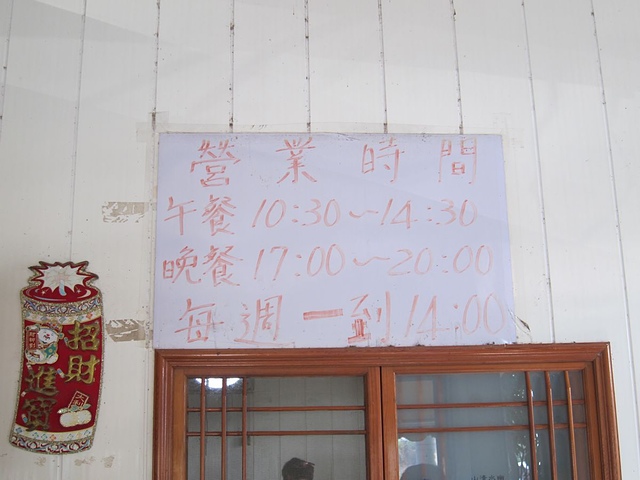 營業時間
午餐 10:30~14:30
晚餐 17:00~20:00
每週一到14:00
招財
進寶